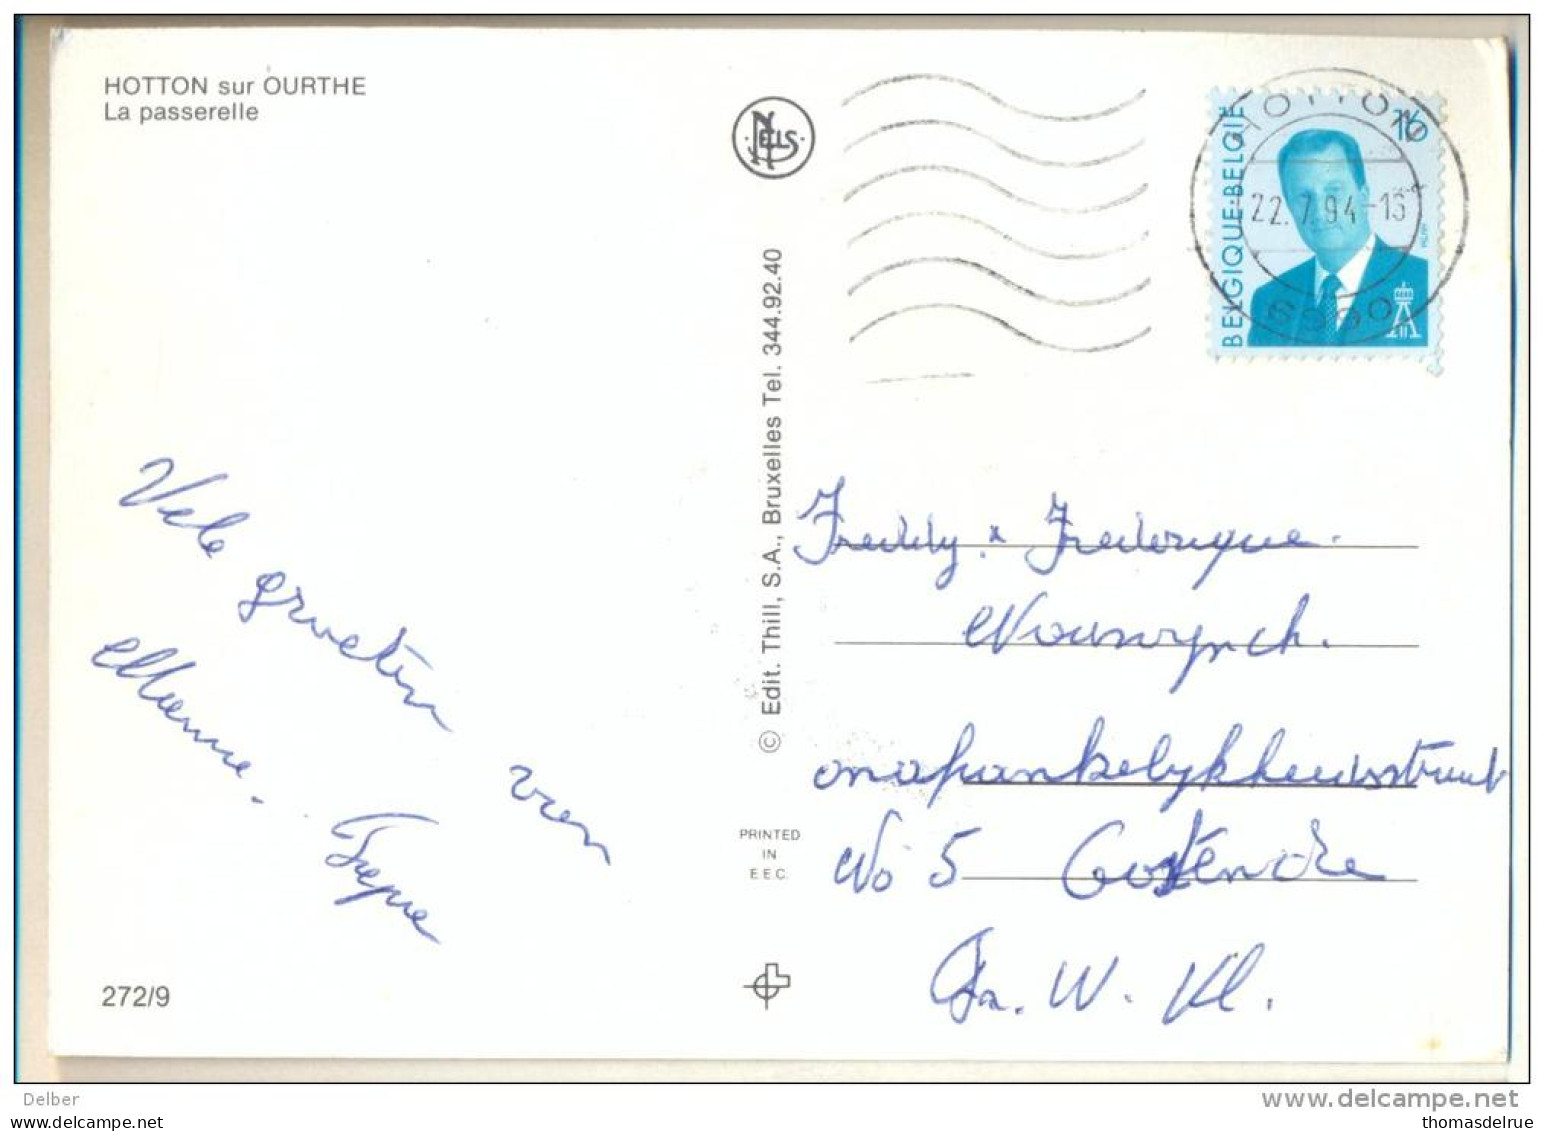 HOTTON sur OURTHE
La passerelle
NELS
HOTTON
22.7.94-16
6990
BELGIQUE·BELGIË
16
© Edit. Thill, S.A., Bruxelles Tel. 344.92.40
Vele groeten van
Freddy & Frederique.
onafhankelijkheidsstraat
No 5 Oostende
W. Vl.
PRINTED
IN
E.E.C.
272/9
Delber
www.delcampe.net
www.delcampe.net
thomasdelrue